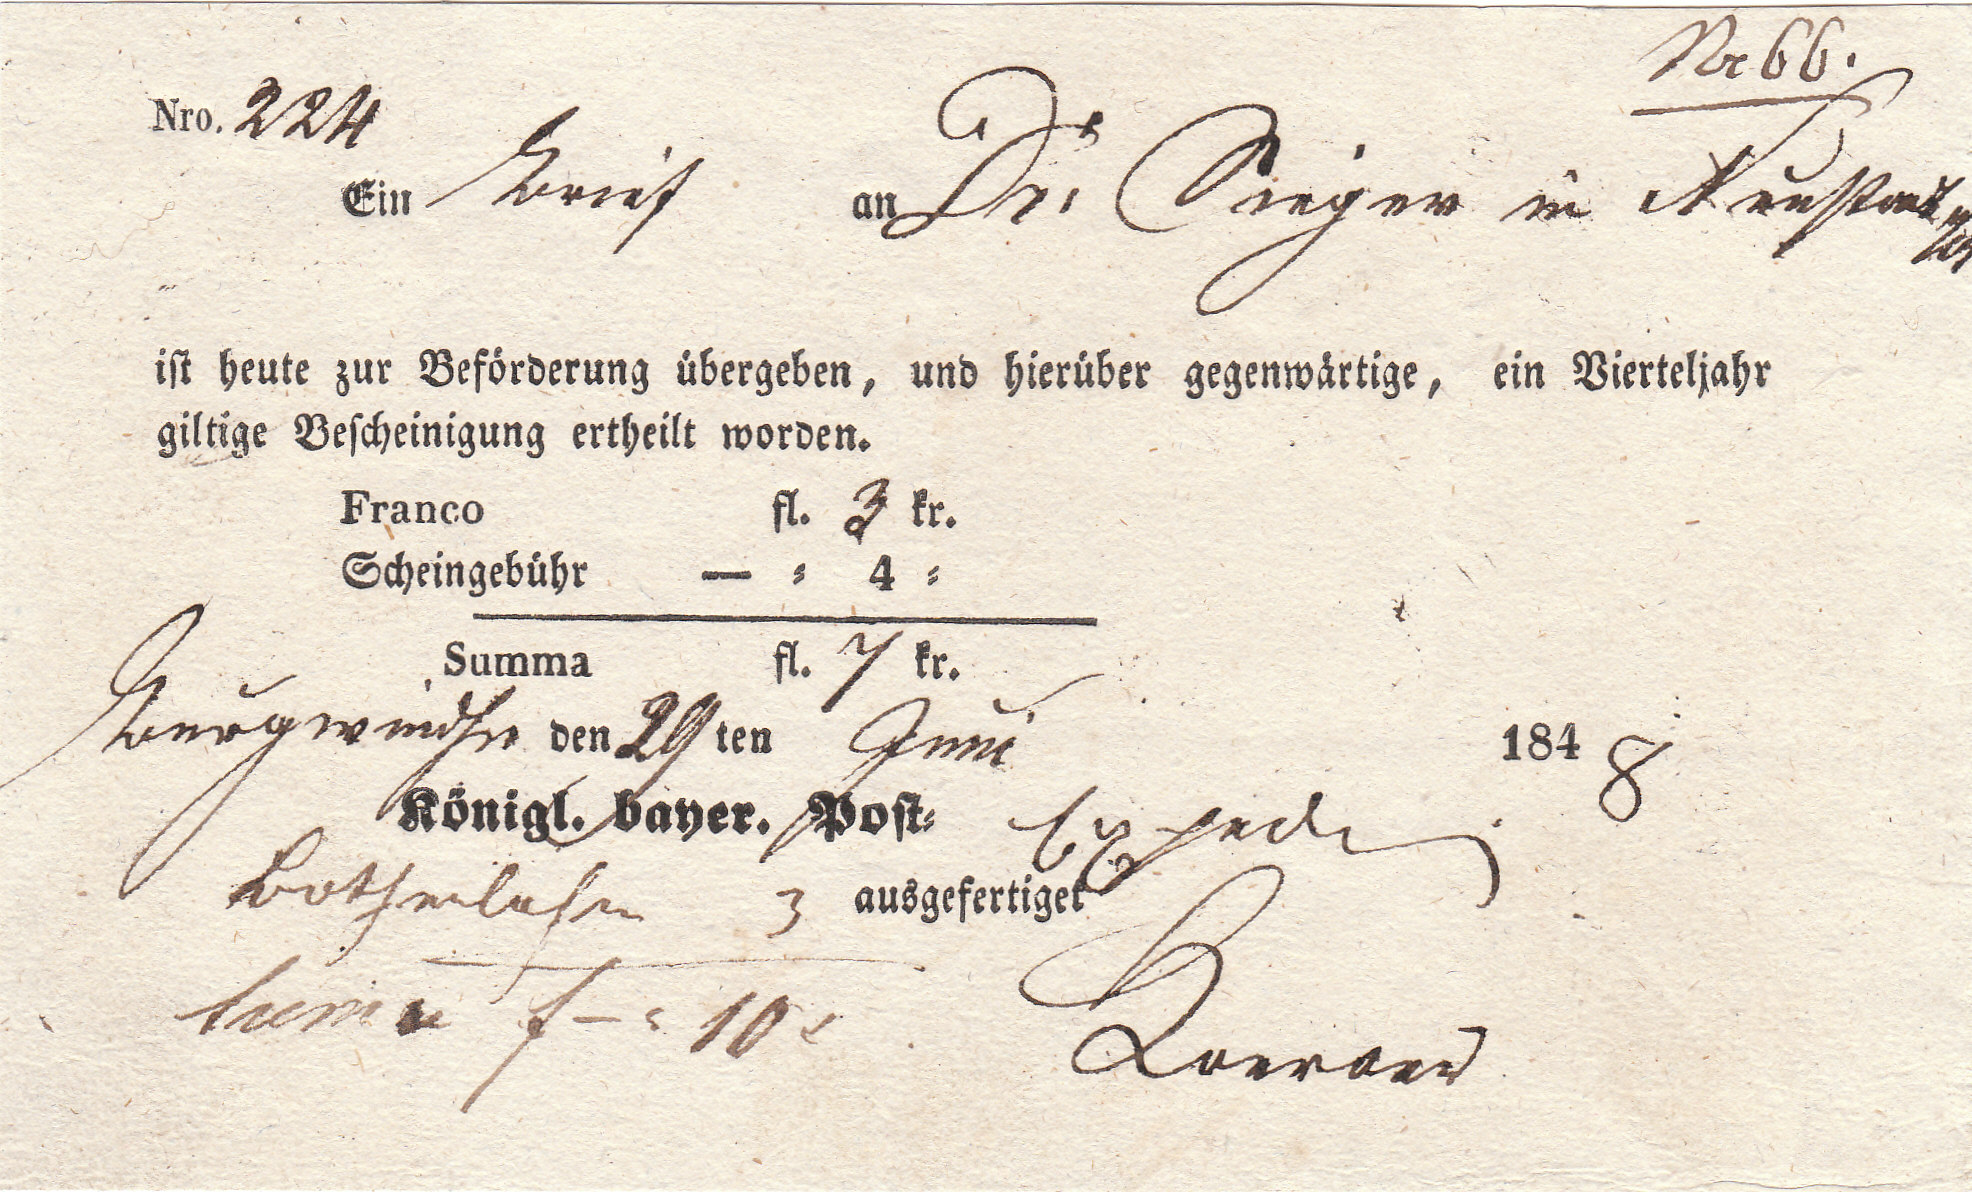 No 66.
Nro. 224
Ein Brief an Dr. Seeger in Neustadt
iſt heute zur Beförderung übergeben, und hierüber gegenwärtige, ein Vierteljahr
giltige Beſcheinigung ertheilt worden.
Franco fl. 3 kr.
Scheingebühr — " 4 "
Summa fl. 7 kr.
Burgwindheim den 29 ten Juni 1848
Königl. bayer. Poſt- Exped
Bothenlohn 3 ausgefertiget
Summa f — " 10 x